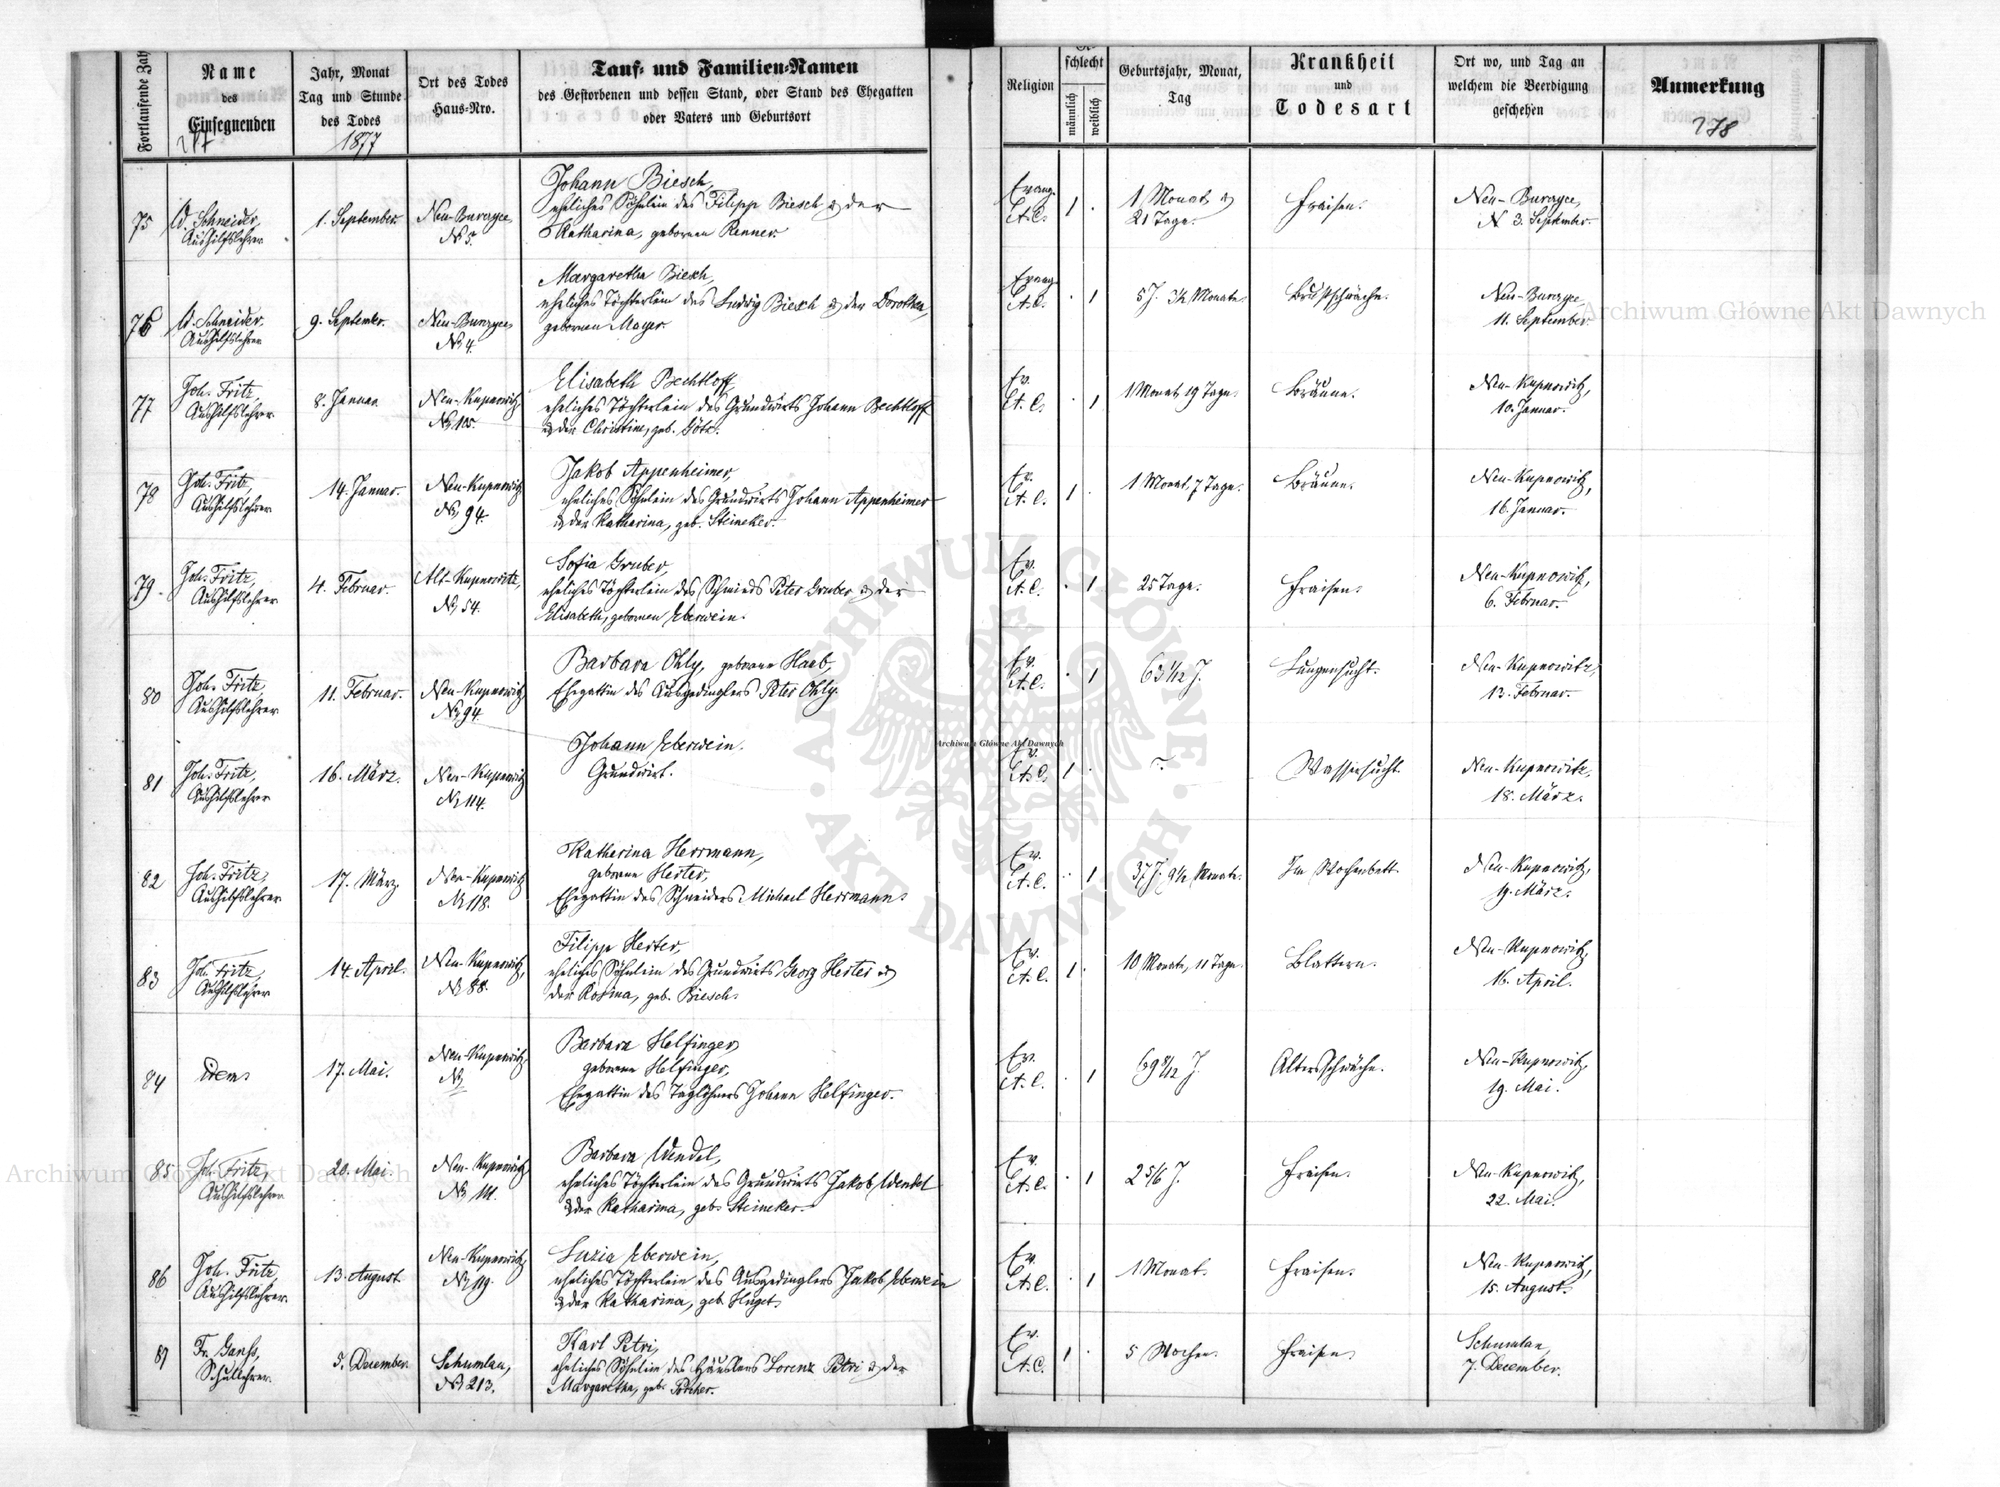 Fortlaufende Zahl
Name
des
Einsegnenden
277
Jahr, Monat
Tag und Stunde
des Todes
1877
Ort des Todes
Haus-Nro.
Tauf- und Familien-Namen
des Gestorbenen und dessen Stand, oder Stand des Ehegatten
oder Vaters und Geburtsort
Religion
Ge-
schlecht
männlich
weiblich
Geburtsjahr, Monat,
Tag
Krankheit
und
Todesart
Ort wo, und Tag an
welchem die Beerdigung
geschehen
Anmerkung
278
75
Schneider,
Aushilfslehrer
1. September.
Neu-Burczyce,
№ 5.
Johann Biesch,
eheliches Söhnlein des Filipp Biesch & der
Katharina, gebornen Renner.
Evang.
A. C.
1 .
1 Monat &
21 Tage.
Fraisen.
Neu-Burczyce,
3. September.
76
Schneider,
Aushilfslehrer
9. September.
Neu-Burczyce,
№ 4.
Margaretha Biesch,
eheliches Töchterlein des Ludwig Biesch & der Dorothea,
gebornen Mayer.
Evang.
A. C.
. 1
5 J. 3½ Monate.
Brustschwäche.
Neu-Burczyce,
11. September.
77
Joh. Fritz,
Aushilfslehrer
8. Januar.
Neu-Kupnowitz,
№ 105.
Elisabeth Bechtloff,
eheliches Töchterlein des Grundwirts Johann Bechtloff
& der Christine, geb. Götz.
Ev.
A. C.
. 1
1 Monat 19 Tage.
Bräune.
Neu-Kupnowitz,
10. Januar.
78
Joh. Fritz,
Aushilfslehrer
14. Januar.
Neu-Kupnowitz,
№ 94.
Jakob Appenheimer,
eheliches Söhnlein des Grundwirts Johann Appenheimer
& der Katharina, geb. Steineker.
Ev.
A. C.
1 .
1 Monat, 7 Tage.
Bräune.
Neu-Kupnowitz,
16. Januar.
79.
Joh. Fritz,
Aushilfslehrer
4. Februar.
Alt-Kupnowitz,
№ 54.
Sofia Gruber,
eheliches Töchterlein des Schmieds Peter Gruber & der
Elisabeth, gebornen Eberwein.
Ev.
A. C.
. 1
25 Tage.
Fraisen.
Neu-Kupnowitz,
6. Februar.
80
Joh. Fritz,
Aushilfslehrer
11. Februar.
Neu-Kupnowitz,
№ 94.
Barbara Ohly, geborne Haab,
Ehegattin des Ausgedinglers Peter Ohly.
Ev.
A. C.
. 1
63 1/12 J.
Lungensucht.
Neu-Kupnowitz,
13. Februar.
81
Joh. Fritz,
Aushilfslehrer
16. März.
Neu-Kupnowitz
№ 114.
Johann Eberwein.
Grundwirt.
Ev.
A. C.
1 .
Wassersucht
Neu-Kupnowitz,
18. März.
82
Joh. Fritz,
Aushilfslehrer
17. März.
Neu-Kupnowitz
№ 118.
Katharina Herrmann,
geborne Herter,
Ehegattin des Schneiders Michael Herrmann.
Ev.
A. C.
. 1
37 J. 9½ Monate.
Im Wochenbett.
Neu-Kupnowitz,
19. März.
83
Joh. Fritz,
Aushilfslehrer
14. April.
Neu-Kupnowitz,
№ 88.
Filipp Herter,
eheliches Söhnlein des Grundwirts Georg Herter &
der Rosina, geb. Biesch.
Ev.
A. C.
1 .
10 Monate, 11 Tage.
Blattern.
Neu-Kupnowitz,
16. April.
84
Idem.
17. Mai.
Neu-Kupnowitz,
№
Barbara Helfinger,
geborne Helfinger,
Ehegattin des Taglöhners Johann Helfinger.
Ev.
A. C.
. 1
69 8/12 J.
Altersschwäche.
Neu-Kupnowitz,
19. Mai.
85
Joh. Fritz,
Aushilfslehrer
20. Mai.
Neu-Kupnowitz,
№ 111.
Barbara Wendel,
eheliches Töchterlein des Grundwirts Jakob Wendel
& der Katharina, geb. Steineker.
Ev.
A. C.
. 1
2 5/6 J.
Fraisen.
Neu-Kupnowitz,
22. Mai.
86
Joh. Fritz,
Aushilfslehrer
13. August.
Neu-Kupnowitz,
№ 119.
Luzia Eberwein,
eheliches Töchterlein des Ausgedinglers Jakob Eberwein
& der Katharina, geb. Huget.
Ev.
A. C.
. 1
1 Monat.
Fraisen.
Neu-Kupnowitz,
15. August.
87
Fr. Ganss,
Schullehrer.
5. December.
Schumlau,
№ 213.
Karl Petri,
eheliches Söhnlein des Häuslers Lorenz Petri & der
Margaretha, geb.
Ev.
A. C.
1 .
5 Wochen.
Fraisen.
Schumlau,
7. December.
Archiwum Główne Akt Dawnych
Archiwum Główne Akt Dawnych
Archiwum Główne Akt Dawnych
ARCHIWUM GŁÓWNE AKT DAWNYCH